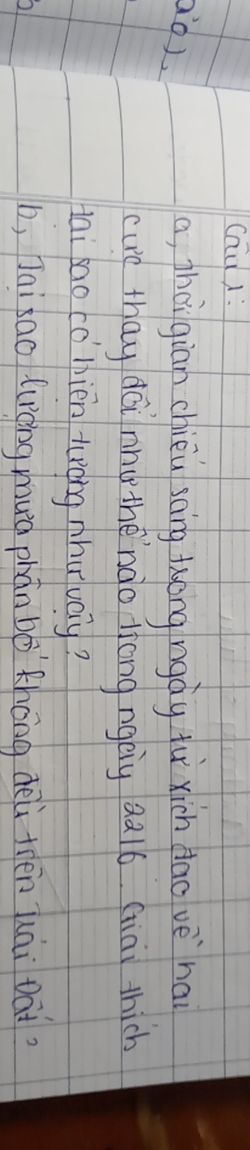 ảo),
Câu 1:
a, Thời gian chiếu sáng trong ngày từ xích đạo về hai
cực thay đổi như thế nào trong ngày 22/6. Giải thích
tại sao có hiện tượng như vậy?
b, Tại sao lượng mưa phân bố không đều trên trái Đất?